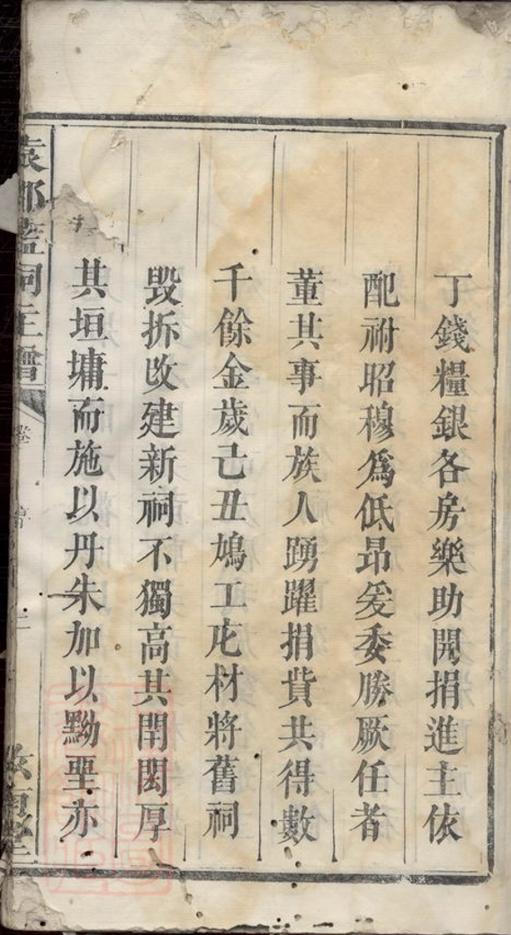 丁錢糧銀各房樂助開捐進主依
配祔昭穆為低昂爰委勝厥任者
董其事而族人踴躍捐貲共得數
千餘金歲己丑鳩工庀材將舊祠
毀拆改建新祠不獨高其閈閎厚
其垣墉而施以丹朱加以黝堊亦
袁郡藍祠主譜
卷